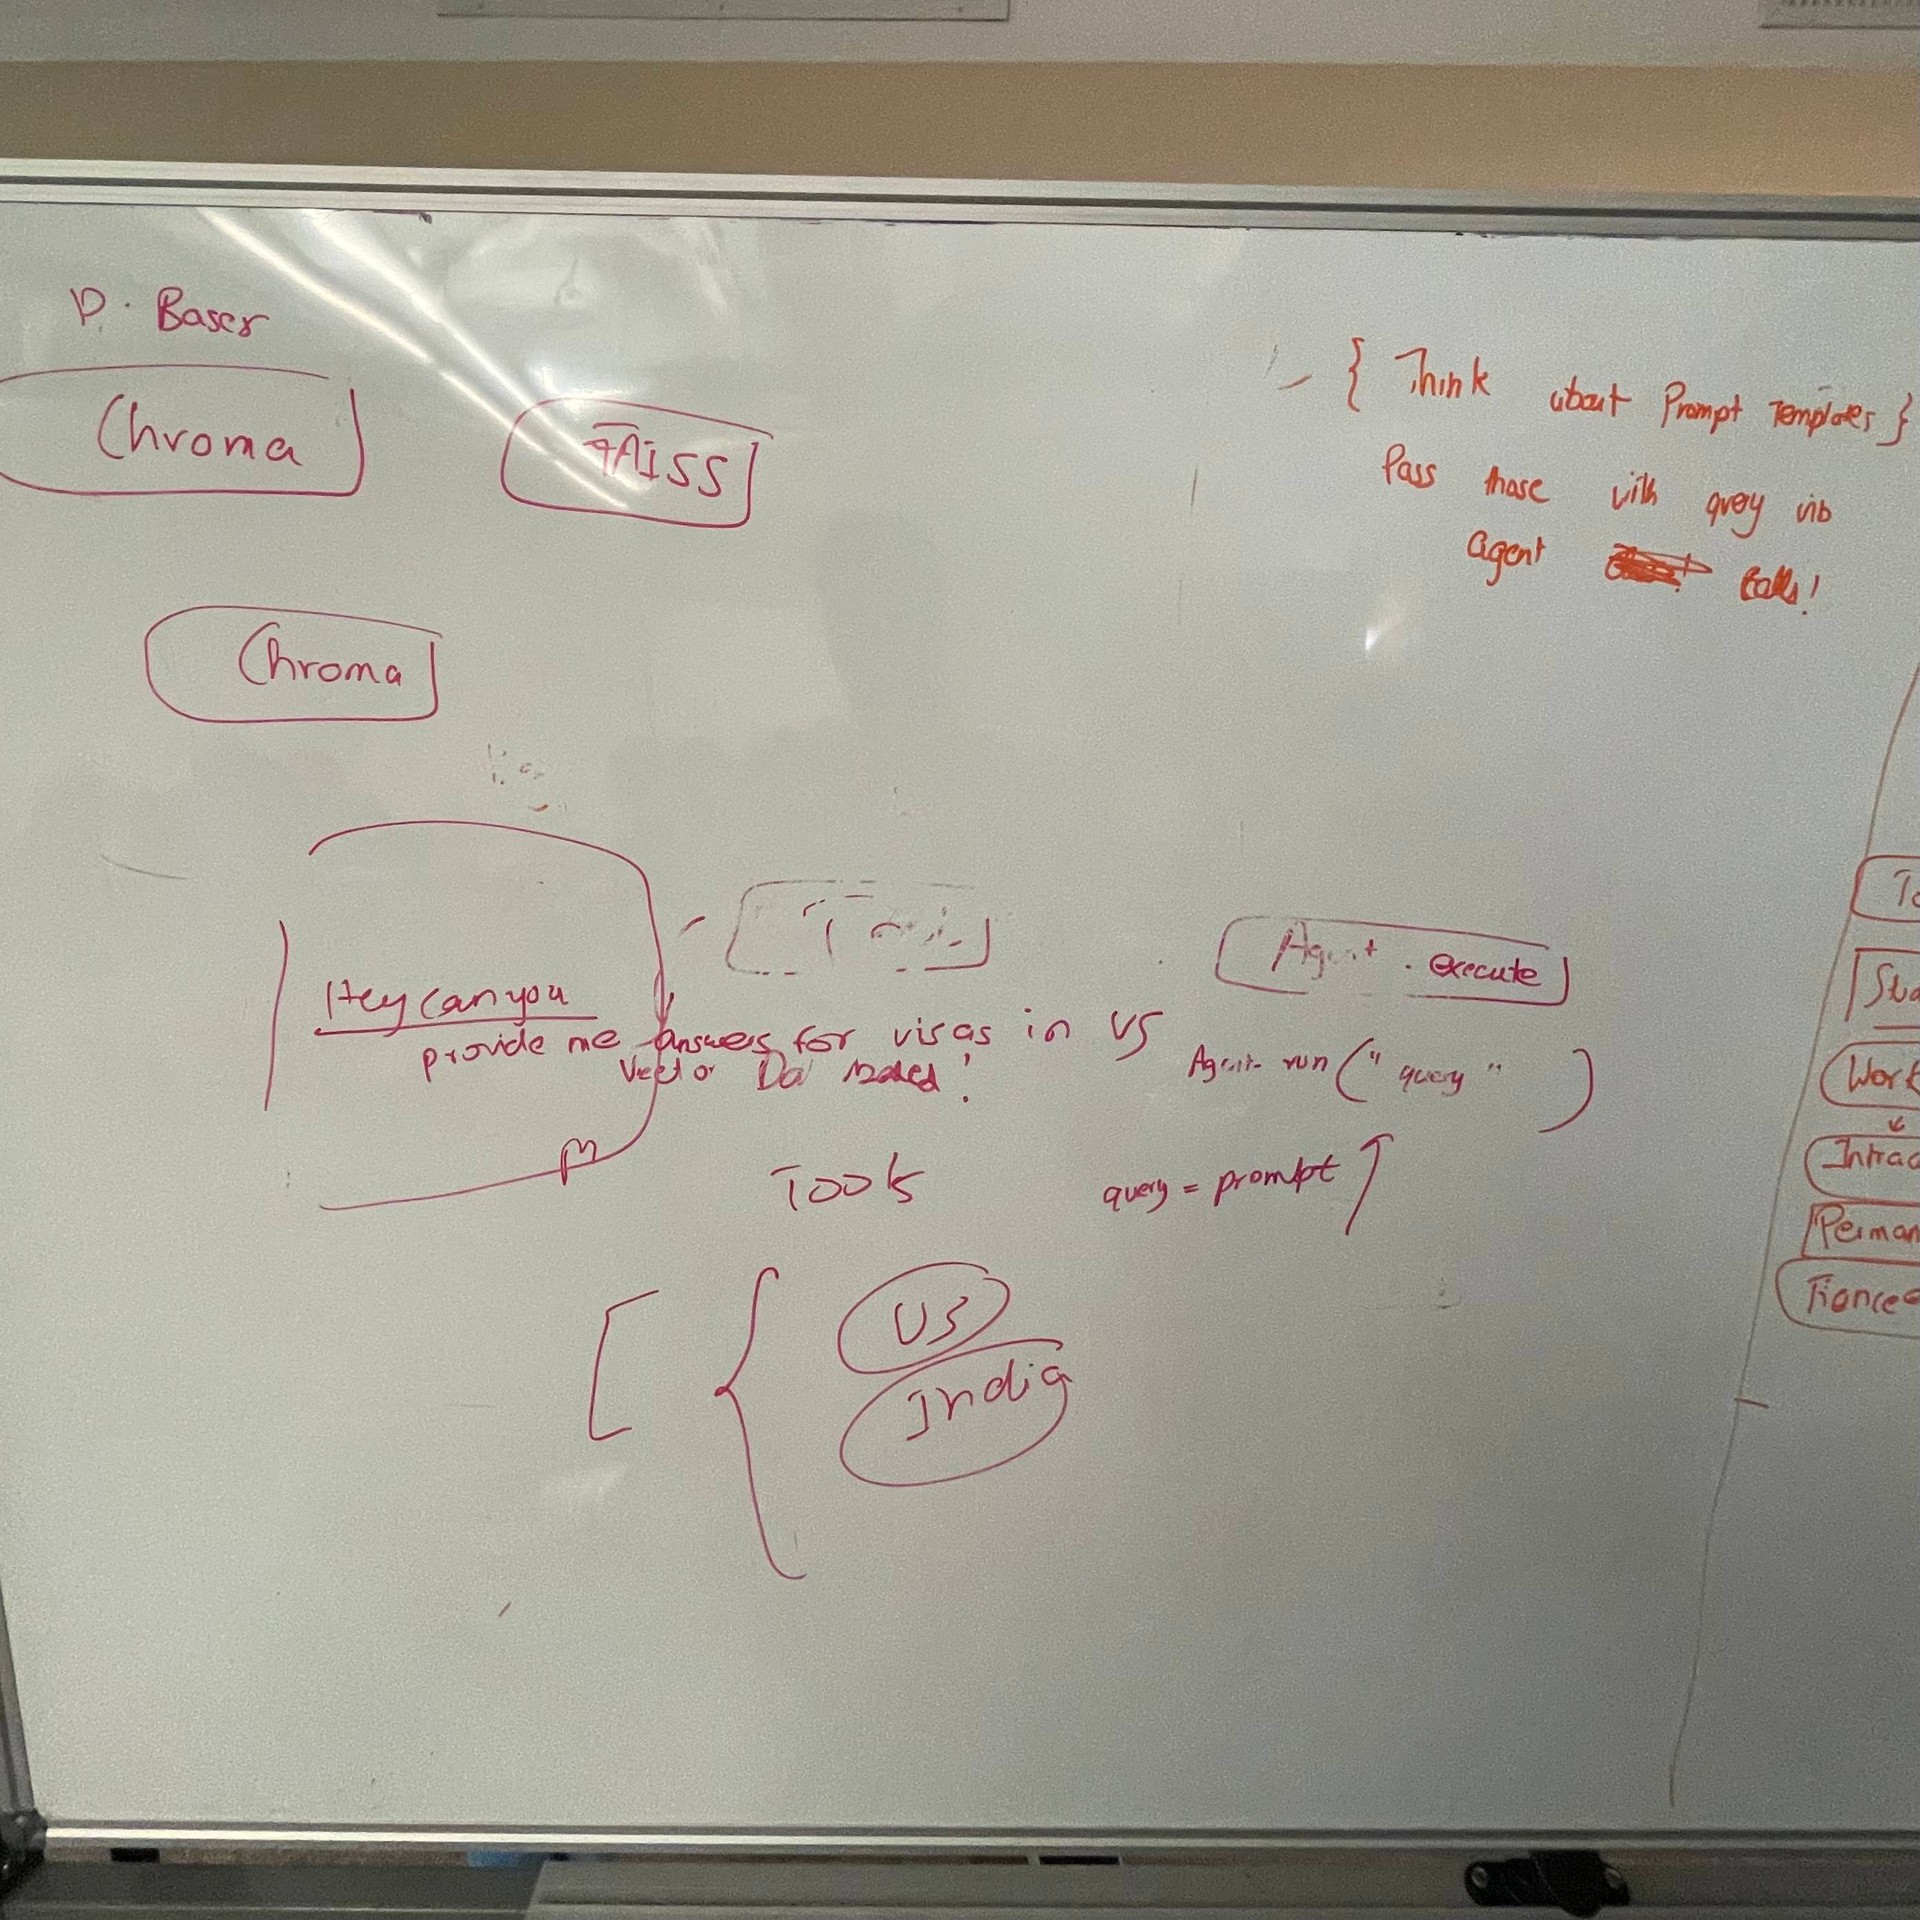 D. Bases
Chroma
FAISS
Chroma
{ Think about Prompt Templates }
Pass those with query via
agent calls!
Agent . execute
Hey can you
provide me answers for visas in US
Vector Da based!
Agent run (" query " )
Tools
query = prompt
US
India
To
Stu
Work
Intrac
Perman
Fiancee